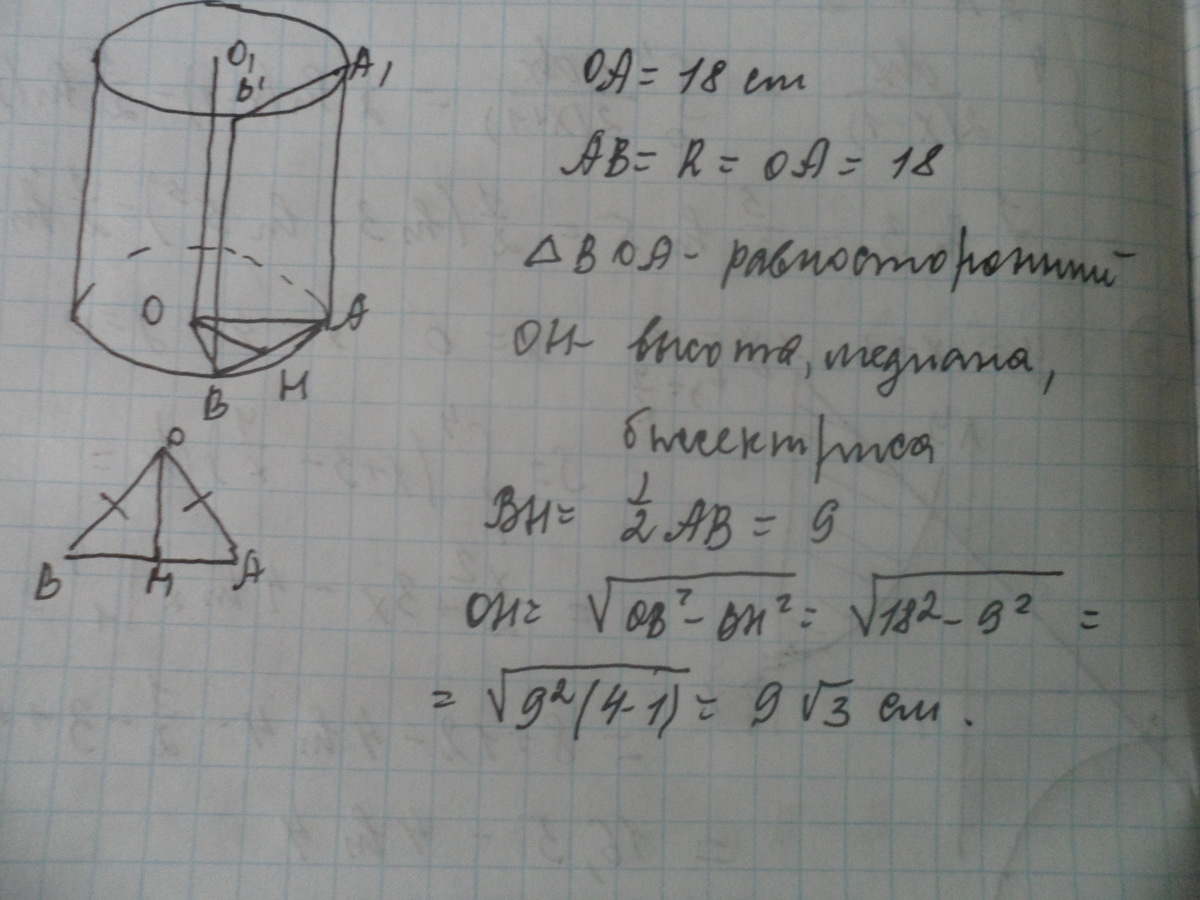 O₁
B' A₁
O A
B H
OA = 18 cm
AB = R = OA = 18
△BOA - равносторонний
OH - высота, медиана,
биссектриса
O
B H A
BH = 1/2 AB = 9
OH = √(OB² - BH²) = √(18² - 9²) =
= √(9²(4-1)) = 9√3 см.